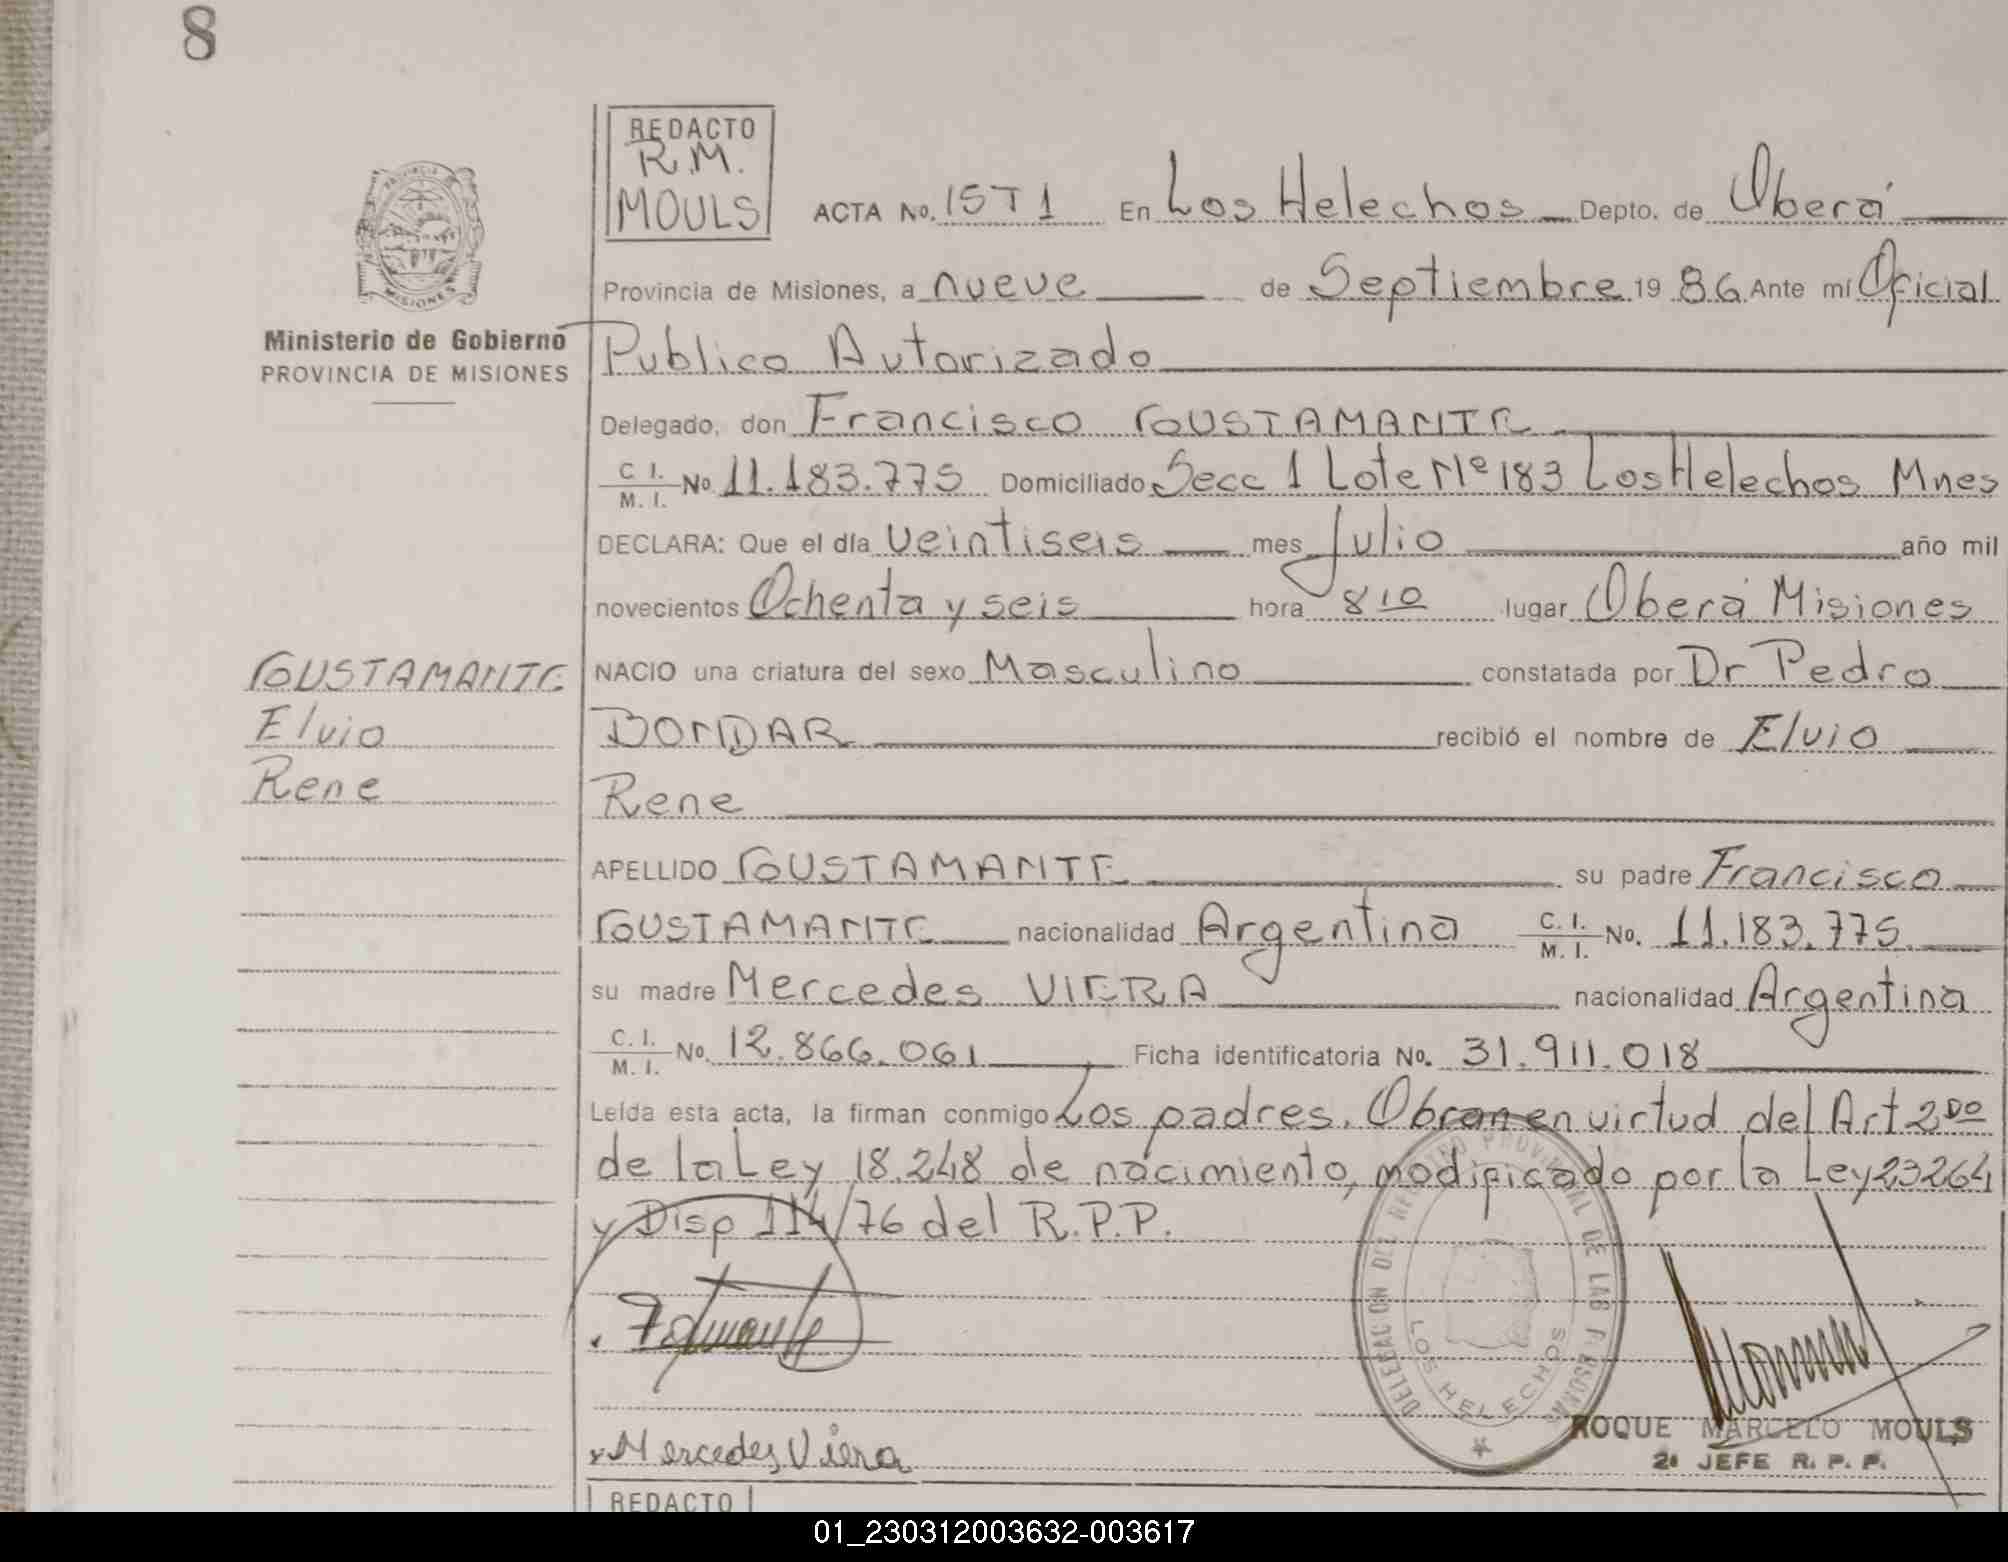 8
REDACTO
R.M.
MOULS
PROVINCIA DE
MISIONES
Ministerio de Gobierno
PROVINCIA DE MISIONES
ACTA No. 15T1 En Los Helechos Depto. de Oberá
Provincia de Misiones, a nueve de Septiembre 19 86 Ante mí Oficial
Publico Autorizado
Delegado, don Francisco GUSTAMANTE
C. I. M. I. No 11.183.775 Domiciliado Secc 1 Lote Nº 183 Los Helechos Mnes
DECLARA: Que el día veintiseis mes Julio año mil
novecientos Ochenta y seis hora 8 10 lugar Oberá Misiones
NACIO una criatura del sexo Masculino constatada por Dr Pedro
BONDAR recibió el nombre de Elvio
Rene
GUSTAMANTE
Elvio
Rene
APELLIDO GUSTAMANTE su padre Francisco
GUSTAMANTE nacionalidad Argentina C. I. M. I. No. 11.183.775
su madre Mercedes VIERA nacionalidad Argentina
C. I. M. I. No. 12.866.061 Ficha identificatoria No. 31.911.018
Leída esta acta, la firman conmigo Los padres. Obran en virtud del Art 2do
de la Ley 18.248 de nacimiento, modificado por la Ley 23264
y Disp 114/76 del R.P.P.
DELEGACION DEL REGISTRO PROVINCIAL DE LAS PERSONAS
LOS HELECHOS
Mercedes Viera
ROQUE MARCELO MOULS
2º JEFE R. P. P.
REDACTO
01_230312003632-003617